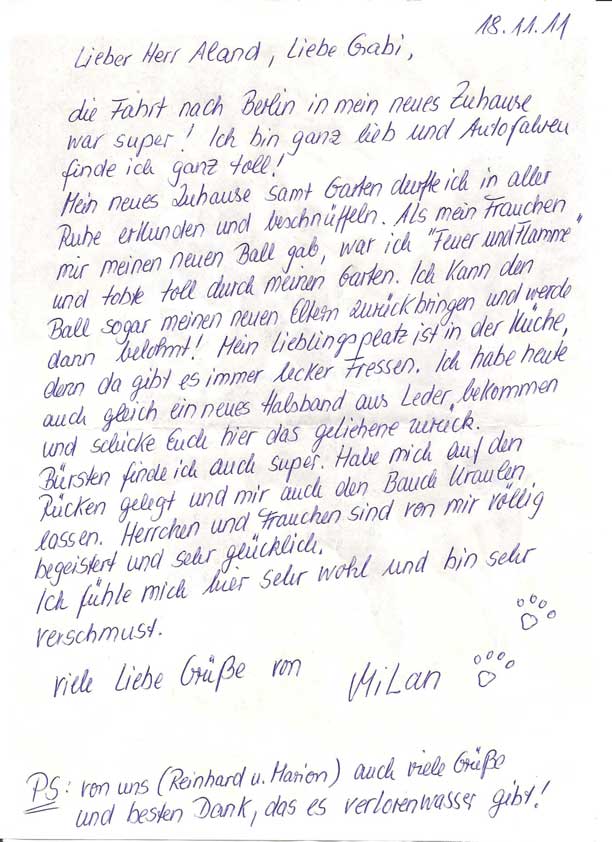 18.11.11
Lieber Herr Aland, Liebe Gabi,
die Fahrt nach Berlin in mein neues Zuhause
war super! Ich bin ganz lieb und Autofahren
finde ich ganz toll!
Mein neues Zuhause samt Garten durfte ich in aller
Ruhe erkunden und beschnüffeln. Als mein Frauchen
mir meinen neuen Ball gab, war ich "Feuer und Flamme"
und tobte toll durch meinen Garten. Ich kann den
Ball sogar meinen neuen Eltern zurückbringen und werde
dann belohnt! Mein Lieblingsplatz ist in der Küche,
denn da gibt es immer lecker Fressen. Ich habe heute
auch gleich ein neues Halsband aus Leder bekommen
und schicke Euch hier das geliehene zurück.
Bürsten finde ich auch super. Habe mich auf den
Rücken gelegt und mir auch den Bauch kraulen
lassen. Herrchen und Frauchen sind von mir völlig
begeistert und sehr glücklich.
Ich fühle mich hier sehr wohl und bin sehr
verschmust.
viele Liebe Grüße von Milan
PS: von uns (Reinhard u. Marion) auch viele Grüße
und besten Dank, das es verlorenwasser gibt!